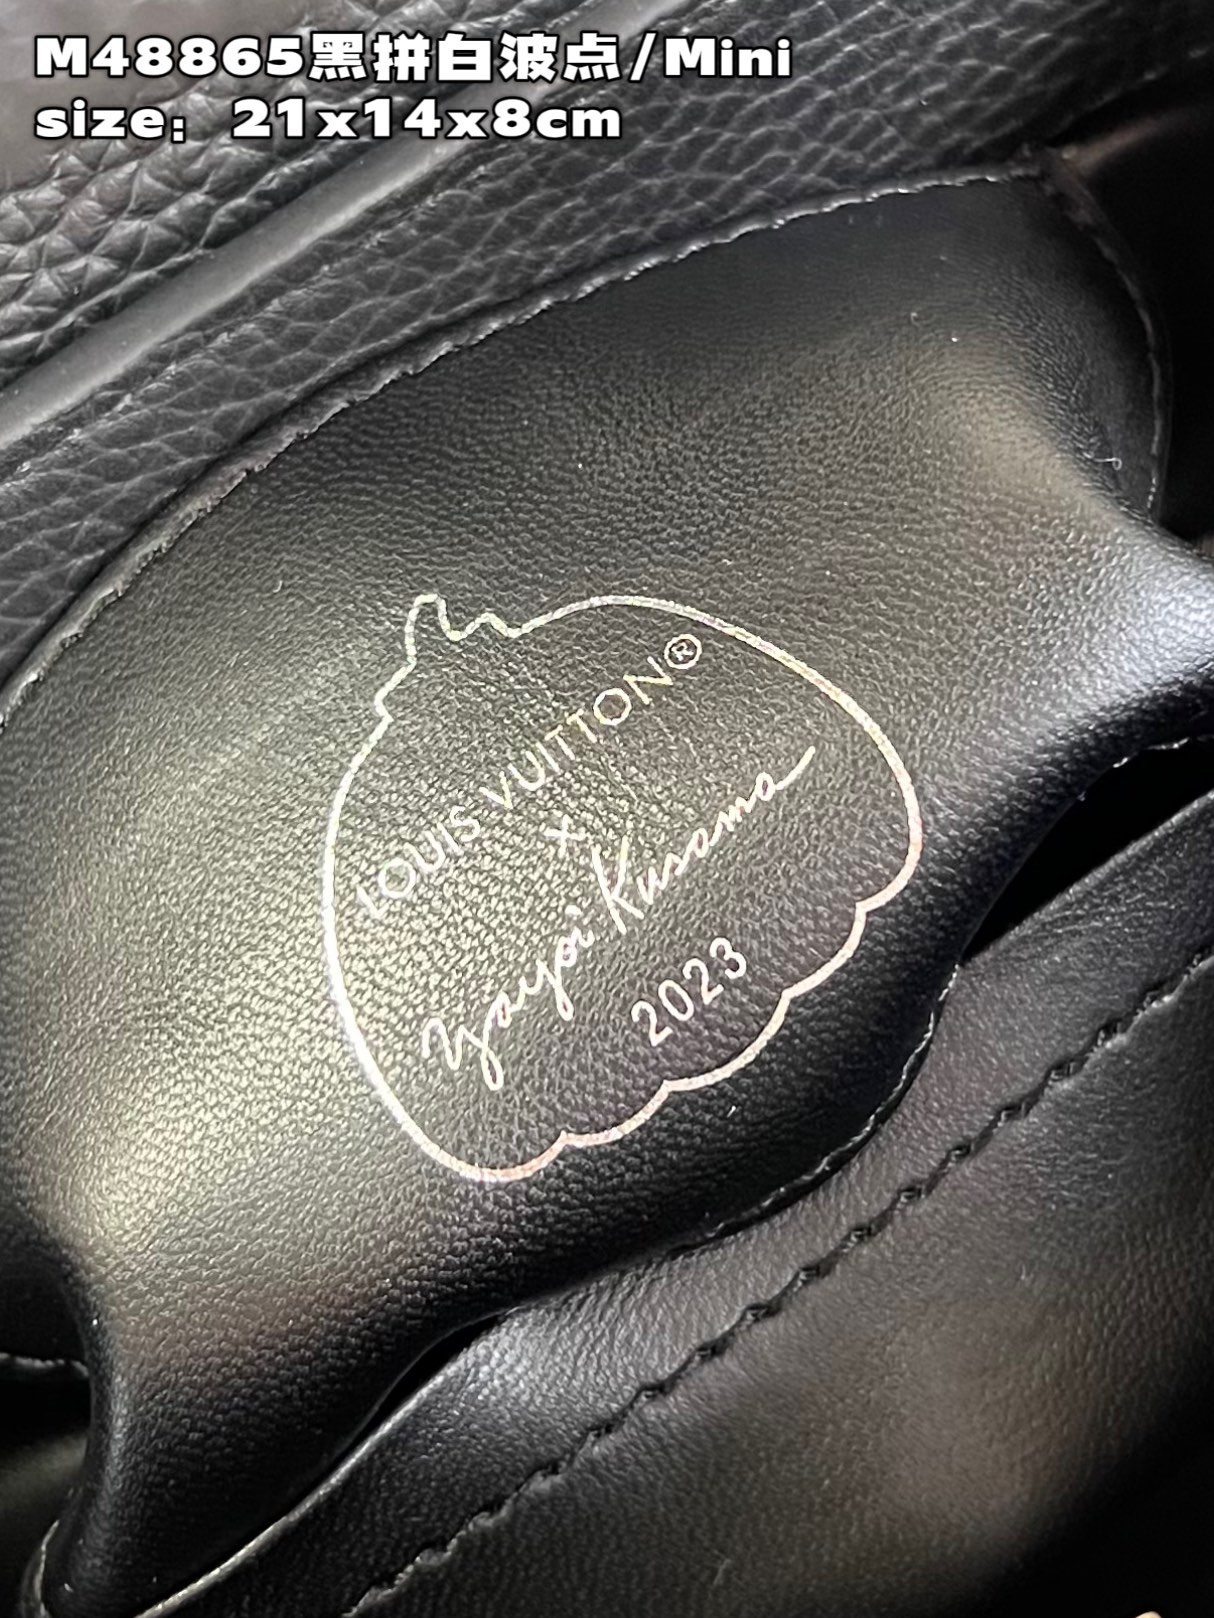 M48865黑拼白波点/Mini
size：21x14x8cm
LOUIS VUITTON®
X
Yayoi Kusama
2023